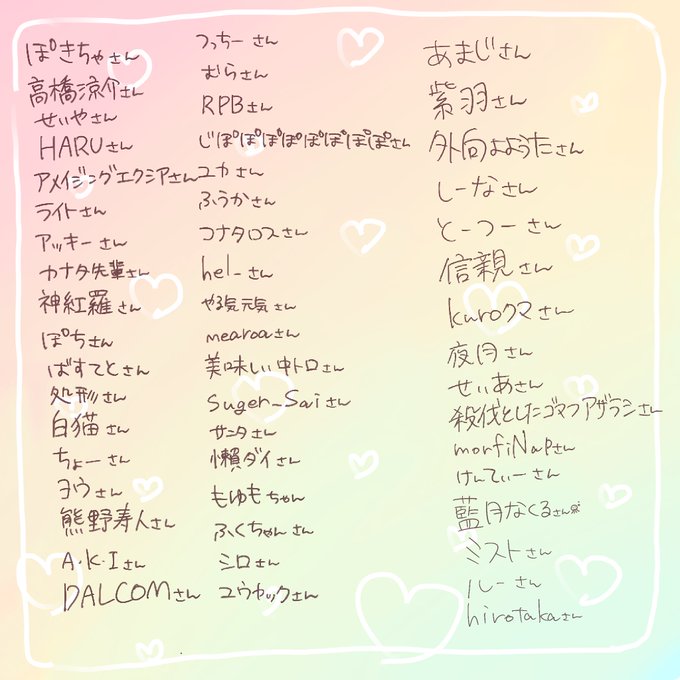 ぽきちゃさん
高橋涼介さん
せいやさん
HARUさん
アメイジングエクシアさん
ライトさん
アッキーさん
カナタ先輩さん
神紅羅さん
ぽちさん
ばすてとさん
処形さん
白猫さん
ちょーさん
ヨウさん
熊野寿人さん
A・K・Iさん
DALCOMさん
つっちーさん
むらさん
RPBさん
じぽぽぽぽぽぽぽぽさん
ユカさん
ふうかさん
コナタロスさん
hel-さん
やる気元気さん
mearoaさん
美味しい中トロさん
suger_Saiさん
サニタさん
懶ダイさん
もゆもちゃん
ふくちゃんさん
シロさん
ユウカックさん
あまじさん
紫羽さん
外向よようたさん
しーなさん
とーつーさん
信親さん
kuroクマさん
夜月さん
せいあさん
殺伐としたゴマフアザラシさん
morfiNapさん
けんてぃーさん
藍月なくるさん
ミストさん
ルーさん
hirotakaさん